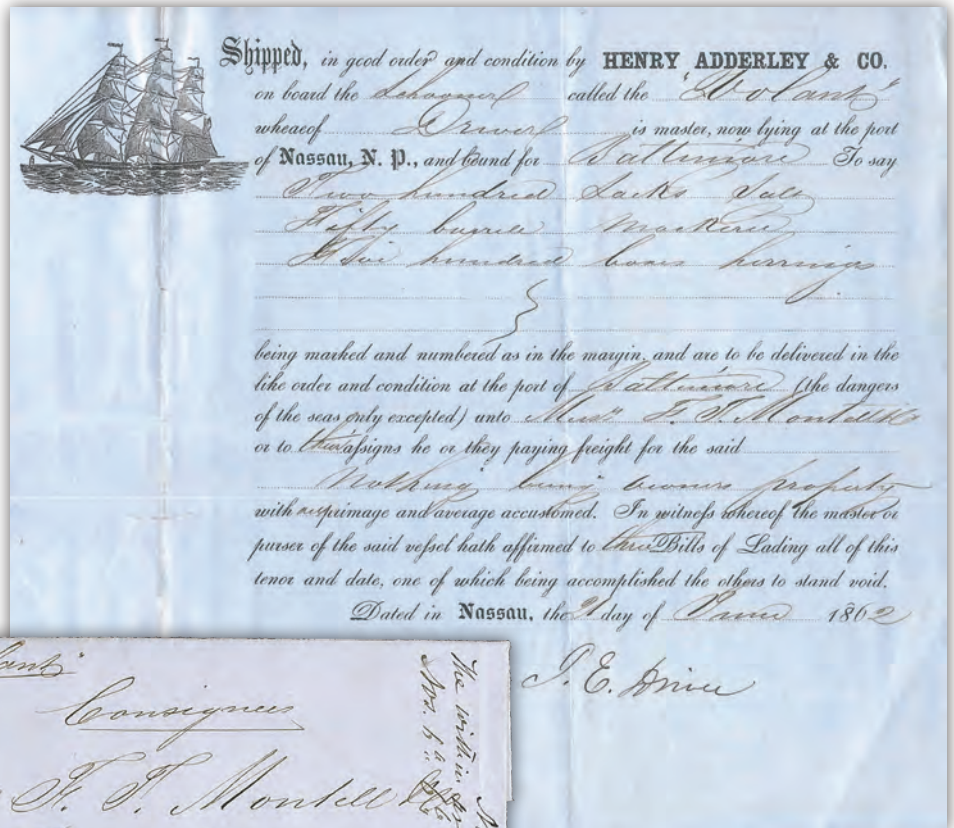 Shipped, in good order and condition by HENRY ADDERLEY & CO.
on board the Schooner called the "Volant"
whereof Driver is master, now lying at the port
of Nassau, N. P., and bound for Baltimore To say
Two hundred Sacks Salt
Fifty barrels Mackerel
Five hundred boxes herrings
being marked and numbered as in the margin, and are to be delivered in the
like order and condition at the port of Baltimore (the dangers
of the seas only excepted) unto Messrs F. T. Montell &
or to their assigns he or they paying freight for the said
Nothing being owners property
with primage and average accustomed. In witness whereof the master or
purser of the said vessel hath affirmed to three Bills of Lading all of this
tenor and date, one of which being accomplished the others to stand void.
Dated in Nassau, the day of June 1862
T. E. Driver
lant"
Consignees
F. T. Montell
The within
Nos.